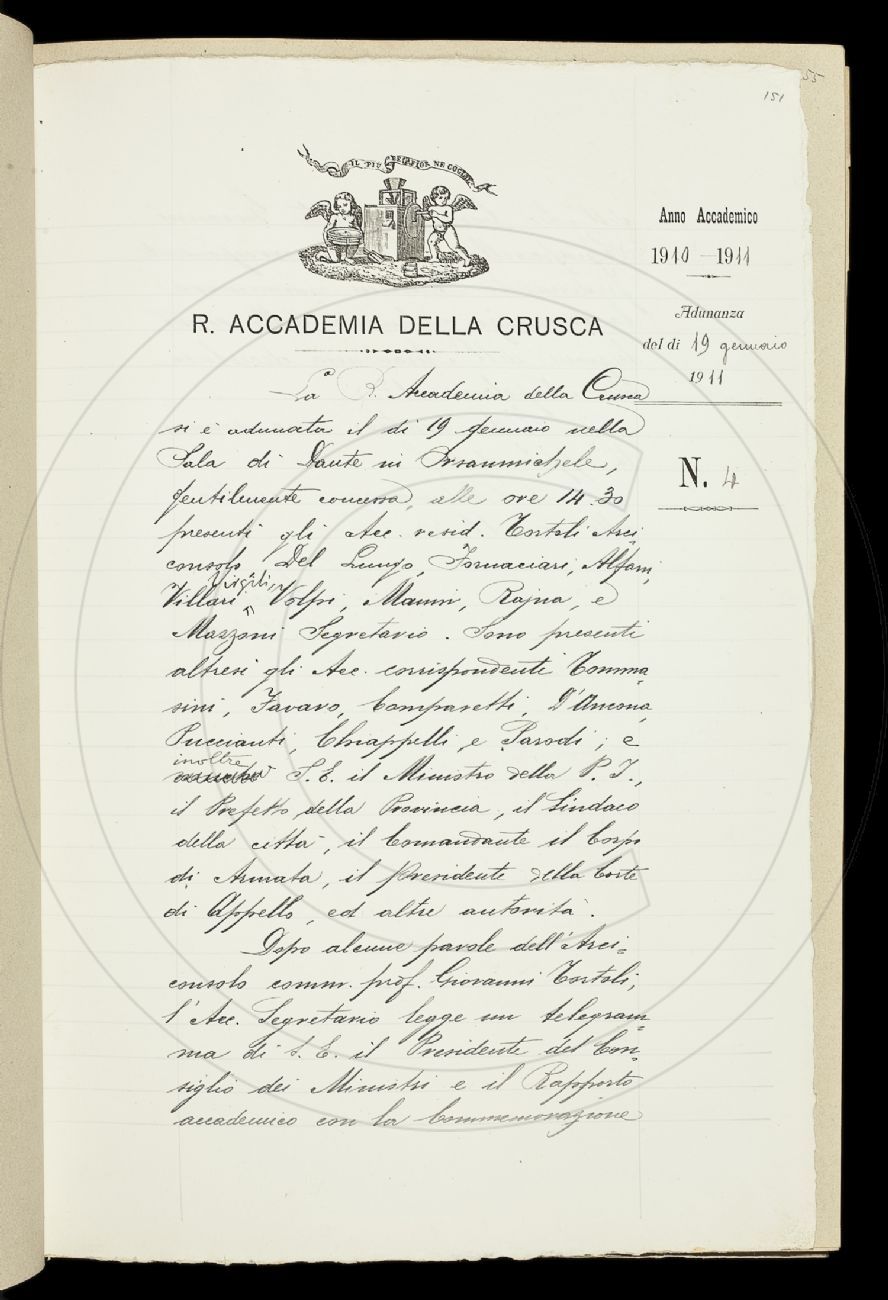 55
151
IL PIÙ BEL FIOR NE COGLIE
Anno Accademico
1910 - 1911
Adunanza
del dì 19 gennaio
1911
R. ACCADEMIA DELLA CRUSCA
N. 4
La R. Accademia della Crusca
si è adunata il dì 19 gennaio nella
Sala di Dante in Orsanmichele,
gentilmente concessa, alle ore 14.30
presenti gli Acc. resid. Tortoli Arci-
consolo, Del Lungo, Fornaciari, Alfani,
Villari, Virgilii, Volpi, Mannu, Rajna, e
Mazzoni Segretario. Sono presenti
altresì gli Acc. corrispondenti Tomma-
sini, Favaro, Comparetti, D'Ancona,
Puccianti, Chiappelli, e Parodi; e
inoltre
S. E. il Ministro della P. I.,
il Prefetto della Provincia, il Sindaco
della città, il Comandante il Corpo
di Armata, il Presidente della Corte
di Appello, ed altre autorità.
Dopo alcune parole dell'Arci=
consolo comm. prof. Giovanni Tortoli,
l'Acc. Segretario legge un telegram-
ma di S. E. il Presidente del Con-
siglio dei Ministri e il Rapporto
accademico con la Commemorazione